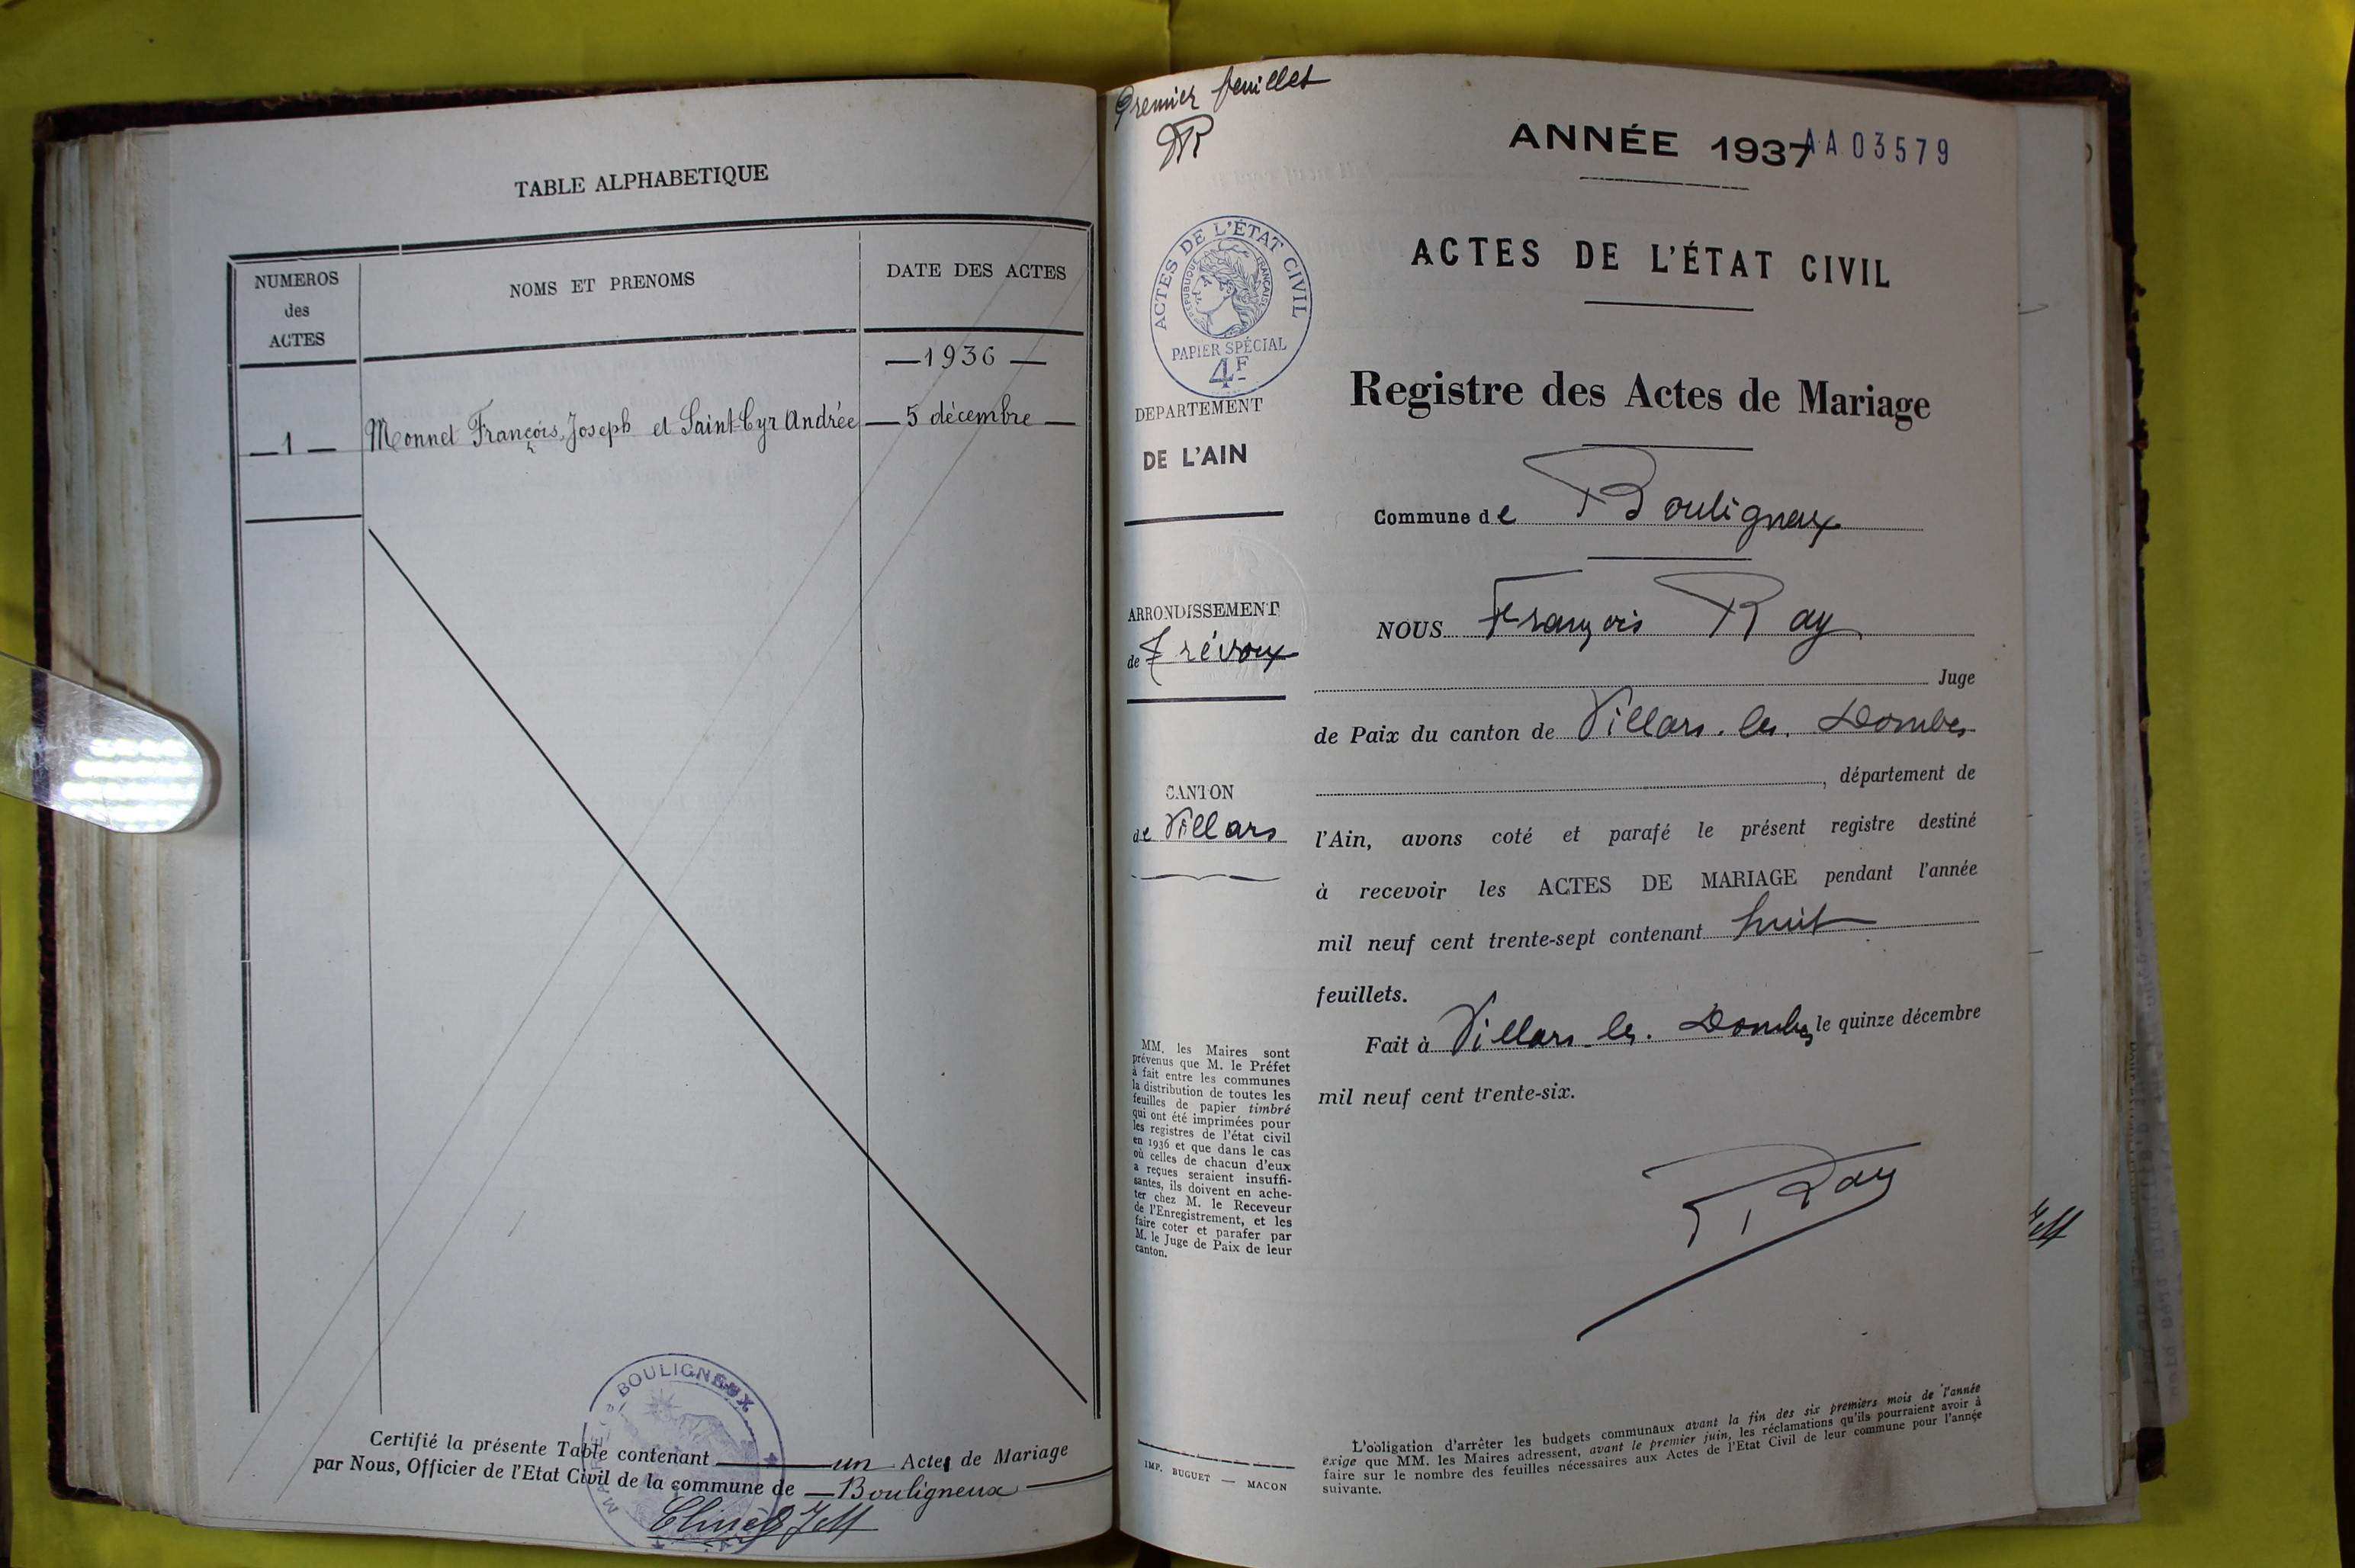 TABLE ALPHABETIQUE
NUMEROS
des
ACTES
NOMS ET PRENOMS
DATE DES ACTES
—1936—
—1— Monnet François, Joseph et Saint-Cyr Andrée —5 décembre—
BOULIGNEUX
Certifié la présente Table contenant un Acte de Mariage
par Nous, Officier de l'Etat Civil de la commune de — Bouligneux —
Premier feuillet
ANNÉE 1937
AA 03579
ACTES DE L'ÉTAT CIVIL
RÉPUBLIQUE FRANÇAISE
PAPIER SPÉCIAL
4F
DEPARTEMENT
DE L'AIN
ARRONDISSEMENT
de Trévoux
CANTON
de Villars
MM. les Maires sont
prévenus que M. le Préfet
à fait entre les communes
la distribution de toutes les
feuilles de papier timbré
qui ont été imprimées pour
les registres de l'état civil
en 1936 et que dans le cas
où celles de chacun d'eux
a reçues seraient insuffi-
santes, ils doivent en ache-
ter chez M. le Receveur
de l'Enregistrement, et les
faire coter et parafer par
M. le Juge de Paix de leur
canton.
IMP. BUGUET — MACON
ACTES DE L'ÉTAT CIVIL
Registre des Actes de Mariage
Commune de Bouligneux
NOUS François Ray
Juge
de Paix du canton de Villars-les-Dombes
, département de
l'Ain, avons coté et parafé le présent registre destiné
à recevoir les ACTES DE MARIAGE pendant l'année
mil neuf cent trente-sept contenant huit
feuillets.
Fait à Villars-les-Dombes le quinze décembre
mil neuf cent trente-six.
Ray
L'obligation d'arrêter les budgets communaux avant la fin des six premiers mois de l'année
exige que MM. les Maires adressent, avant le premier juin, les réclamations qu'ils pourraient avoir à
faire sur le nombre des feuilles nécessaires aux Actes de l'Etat Civil de leur commune pour l'année
suivante.